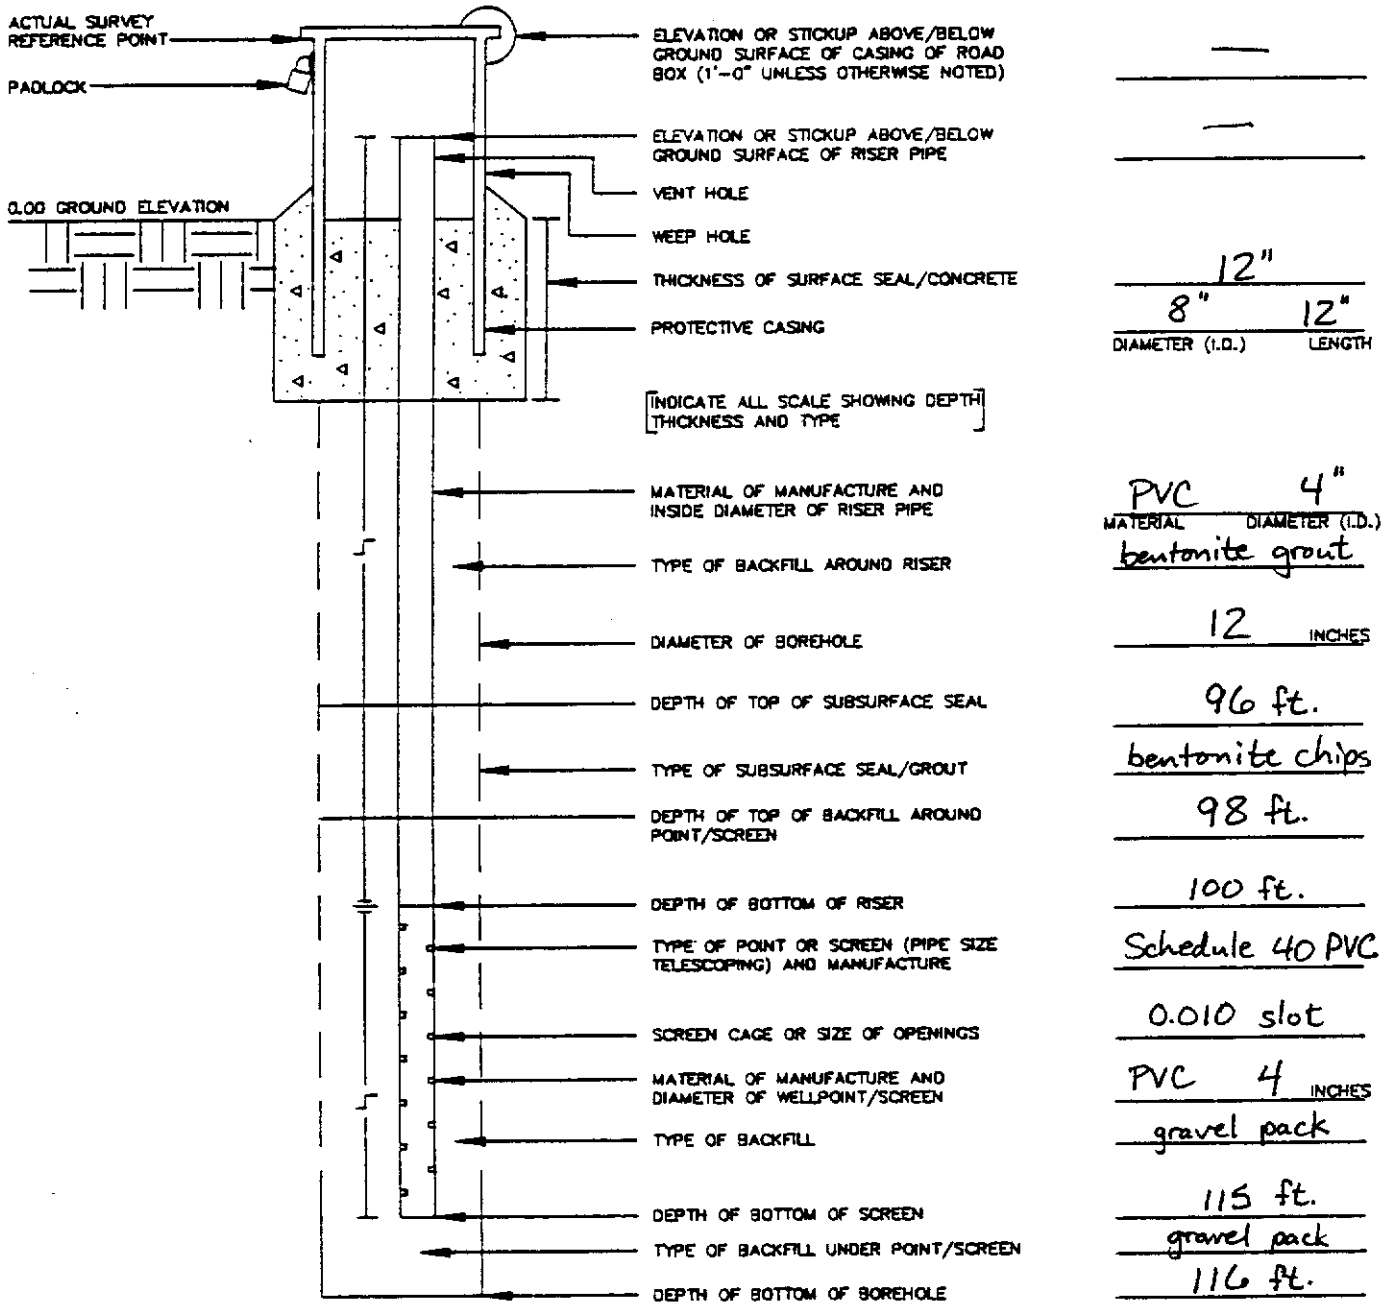 ACTUAL SURVEY
REFERENCE POINT
PADLOCK
0.00 GROUND ELEVATION
ELEVATION OR STICKUP ABOVE/BELOW
GROUND SURFACE OF CASING OF ROAD
BOX (1'-0" UNLESS OTHERWISE NOTED)
—
ELEVATION OR STICKUP ABOVE/BELOW
GROUND SURFACE OF RISER PIPE
—
VENT HOLE
WEEP HOLE
THICKNESS OF SURFACE SEAL/CONCRETE
12"
PROTECTIVE CASING
8" 12"
DIAMETER (I.D.) LENGTH
[INDICATE ALL SCALE SHOWING DEPTH
THICKNESS AND TYPE]
MATERIAL OF MANUFACTURE AND
INSIDE DIAMETER OF RISER PIPE
PVC 4"
MATERIAL DIAMETER (I.D.)
TYPE OF BACKFILL AROUND RISER
bentonite grout
DIAMETER OF BOREHOLE
12 INCHES
DEPTH OF TOP OF SUBSURFACE SEAL
96 ft.
TYPE OF SUBSURFACE SEAL/GROUT
bentonite chips
DEPTH OF TOP OF BACKFILL AROUND
POINT/SCREEN
98 ft.
DEPTH OF BOTTOM OF RISER
100 ft.
TYPE OF POINT OR SCREEN (PIPE SIZE
TELESCOPING) AND MANUFACTURE
Schedule 40 PVC
SCREEN CAGE OR SIZE OF OPENINGS
0.010 slot
MATERIAL OF MANUFACTURE AND
DIAMETER OF WELLPOINT/SCREEN
PVC 4 INCHES
TYPE OF BACKFILL
gravel pack
DEPTH OF BOTTOM OF SCREEN
115 ft.
TYPE OF BACKFILL UNDER POINT/SCREEN
gravel pack
DEPTH OF BOTTOM OF BOREHOLE
116 ft.